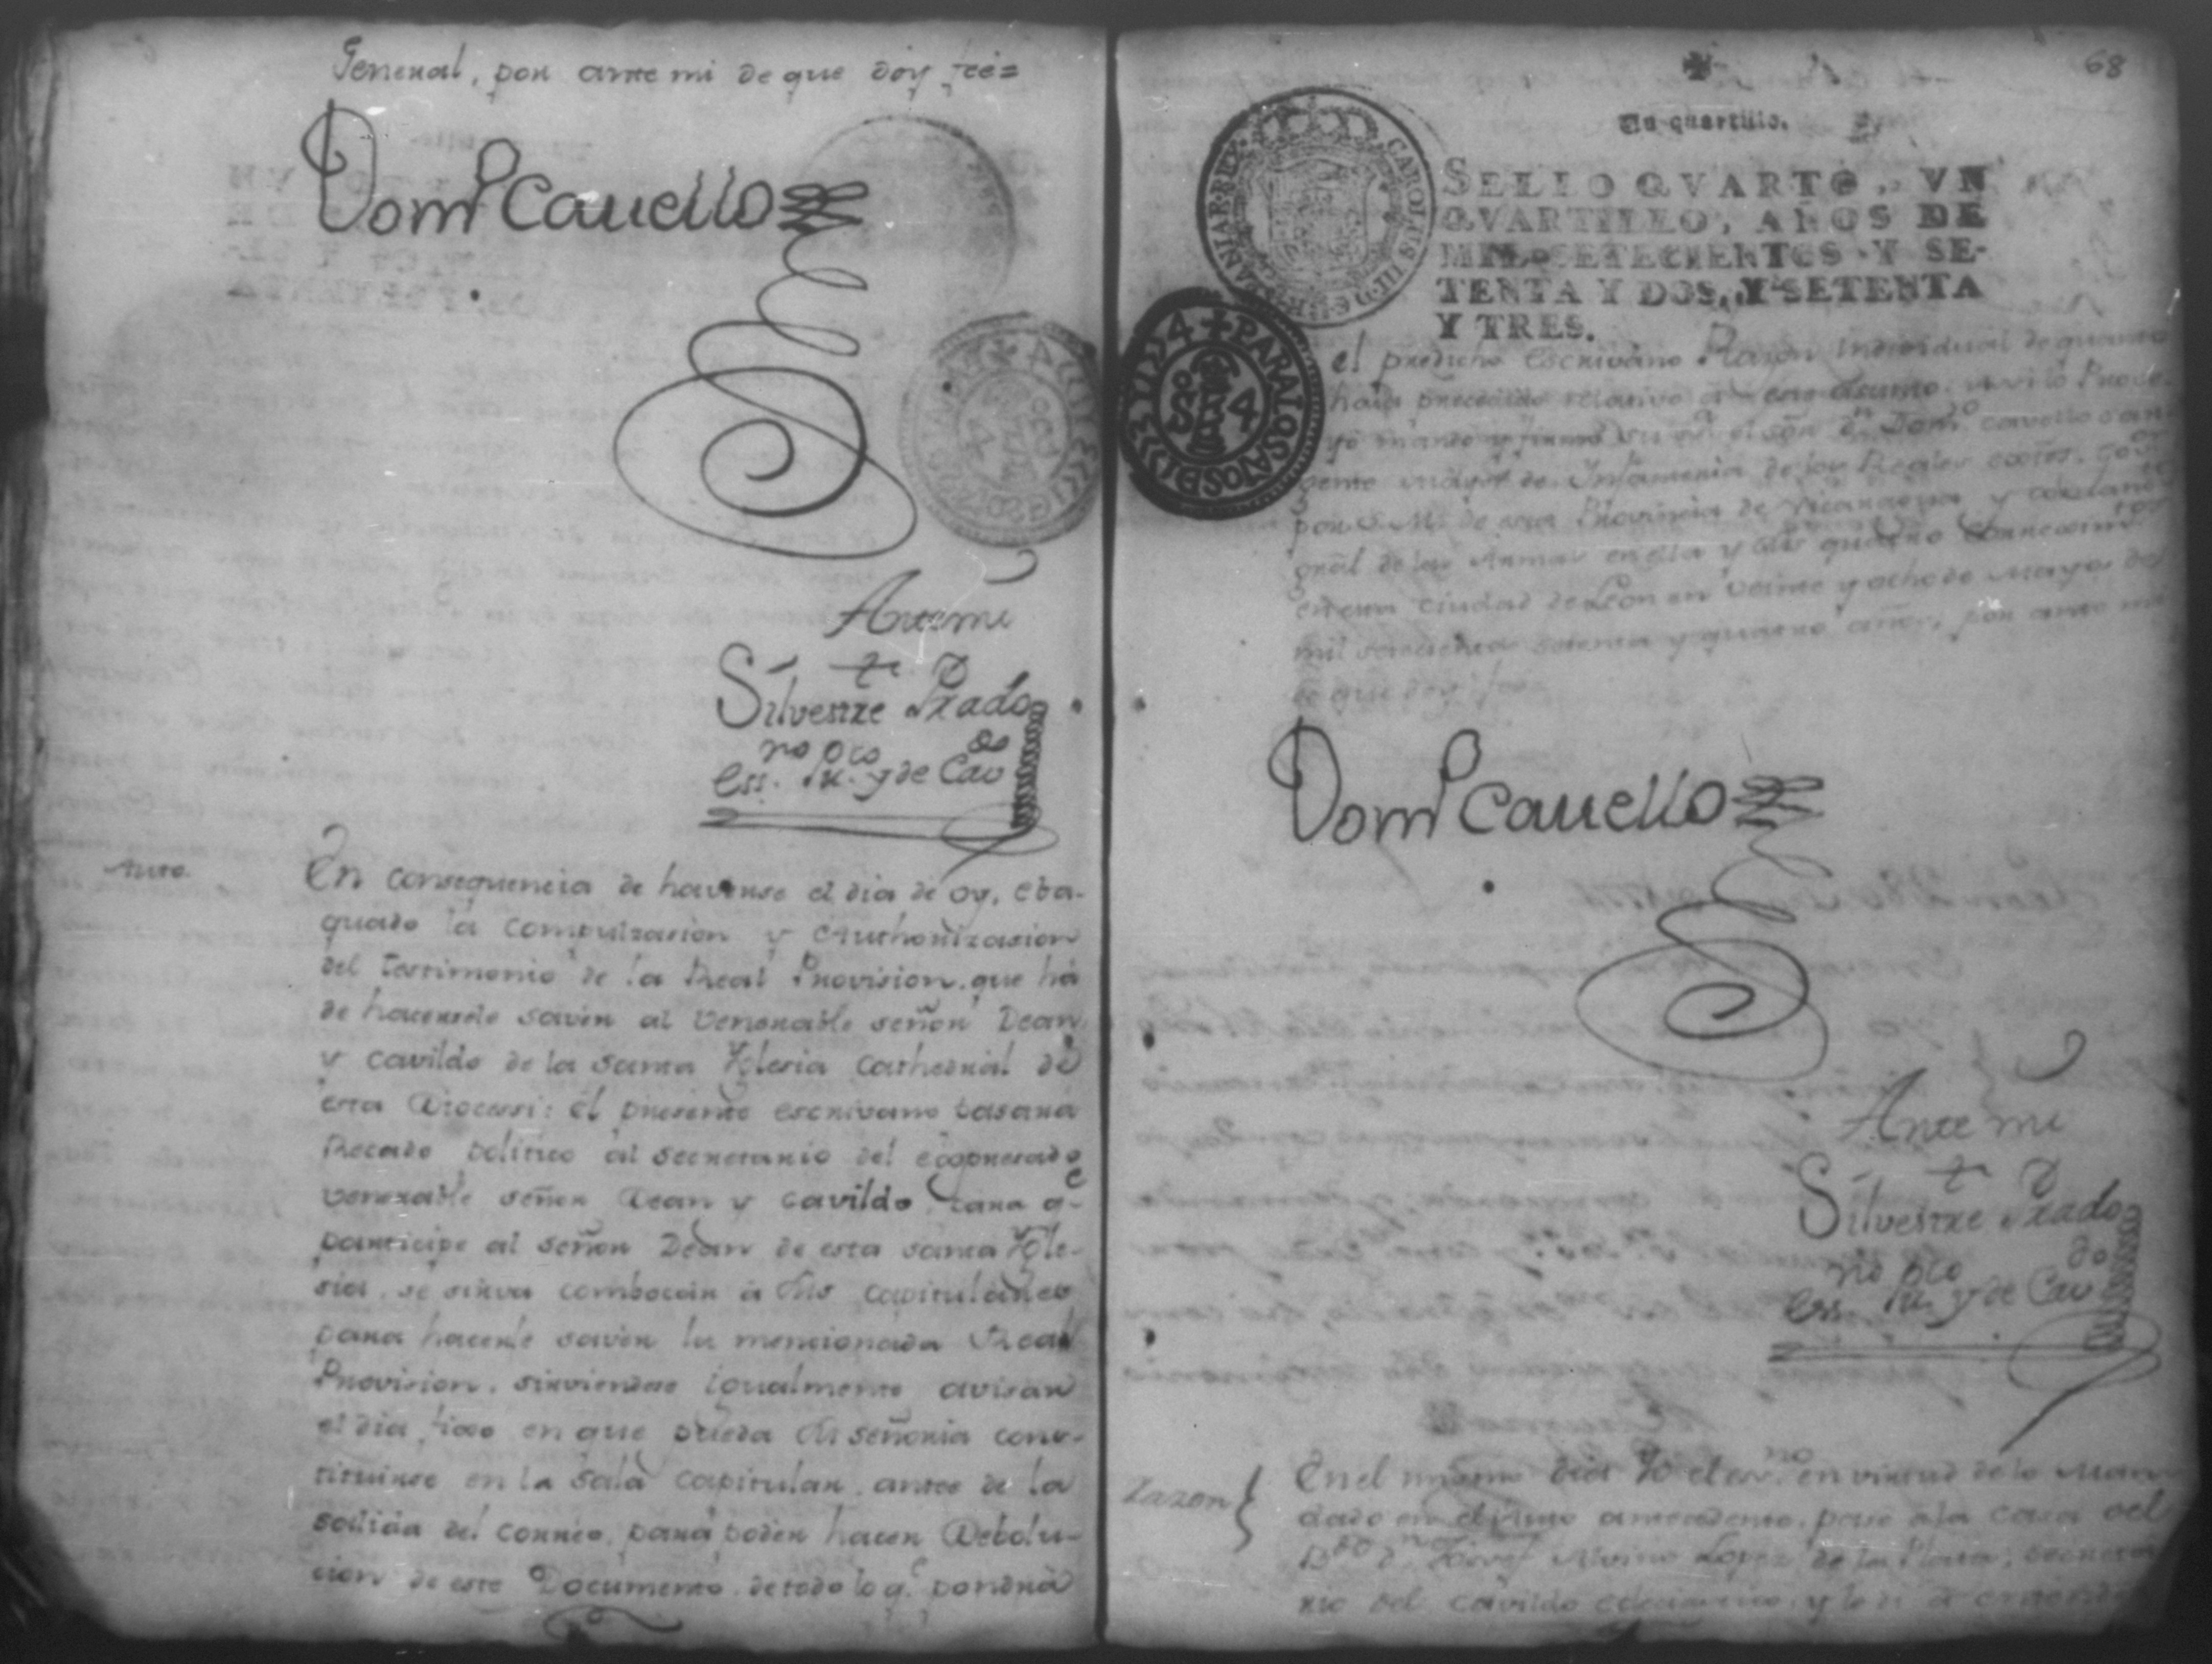 General, por ante mi de que doy feé=
Domo Cauello
Ante mi
Silvestre Prado
Essno. Puco. y de Cavdo
Auto.
En consequencia de haverse el dia de oy, eba-
quado la compulzacion y Authorizasion
del testimonio de la Real Provision, que há
de hacersele saver al Venerable señor Dean,
y cavildo de la santa Yglesia Cathedral de
esta Diocessi: el presente escrivano pasará
Recado politico al secretario del expresado
Venerable señor Dean y cavildo, para qe
participe al señor Dean de esta santa Ygle-
sia, se sirva combocar á sus capitulares
para hacerle saver la mencionada Real
Provision, sirviendose igualmente avisar
el dia fixo en que pueda su señoria cons-
tituirse en la sala capitular, antes de la
salida del correo, para poder hacer Debolu-
cion de este Documento, de todo lo q.e pondrá
68
Un quartillo.
SELLO QVARTO, VN
QVARTILLO, AÑOS DE
MIL SETECIENTOS Y SE-
TENTA Y DOS, Y SETENTA
Y TRES.
CAROLUS III D G HISPANIAR REX
PARA LOS AÑOS DE 1774
SO 4
el predicho escrivano Razon individual de quanto
haia precedido relativo á este asumto. asi lo Prove-
yó mandó y firmó su sria. el señor Dn. Domo. cavello sar-
gento mayor de Infanteria de los Reales extos. Govor.
por S. M. de esta Provincia de Nicaragua y comandante
gral de las Armas en ella y sus quatro Correximtos.
en esta ciudad de Leon en veinte y ocho de Mayo de
mil setecientos setenta y quatro años, por ante mi
de que doy fee
Domo Cauello
Ante mi
Silvestre Prado
Essno. Puco. y de Cavdo
Razon
En el mismo dia Yo el essno. en virtud de lo Man-
dado en el Auto antecedente, pase a la casa del
Dn. Josef Lopez de la Plata, secreta-
rio del cavildo eclesiastico, y le di á entender